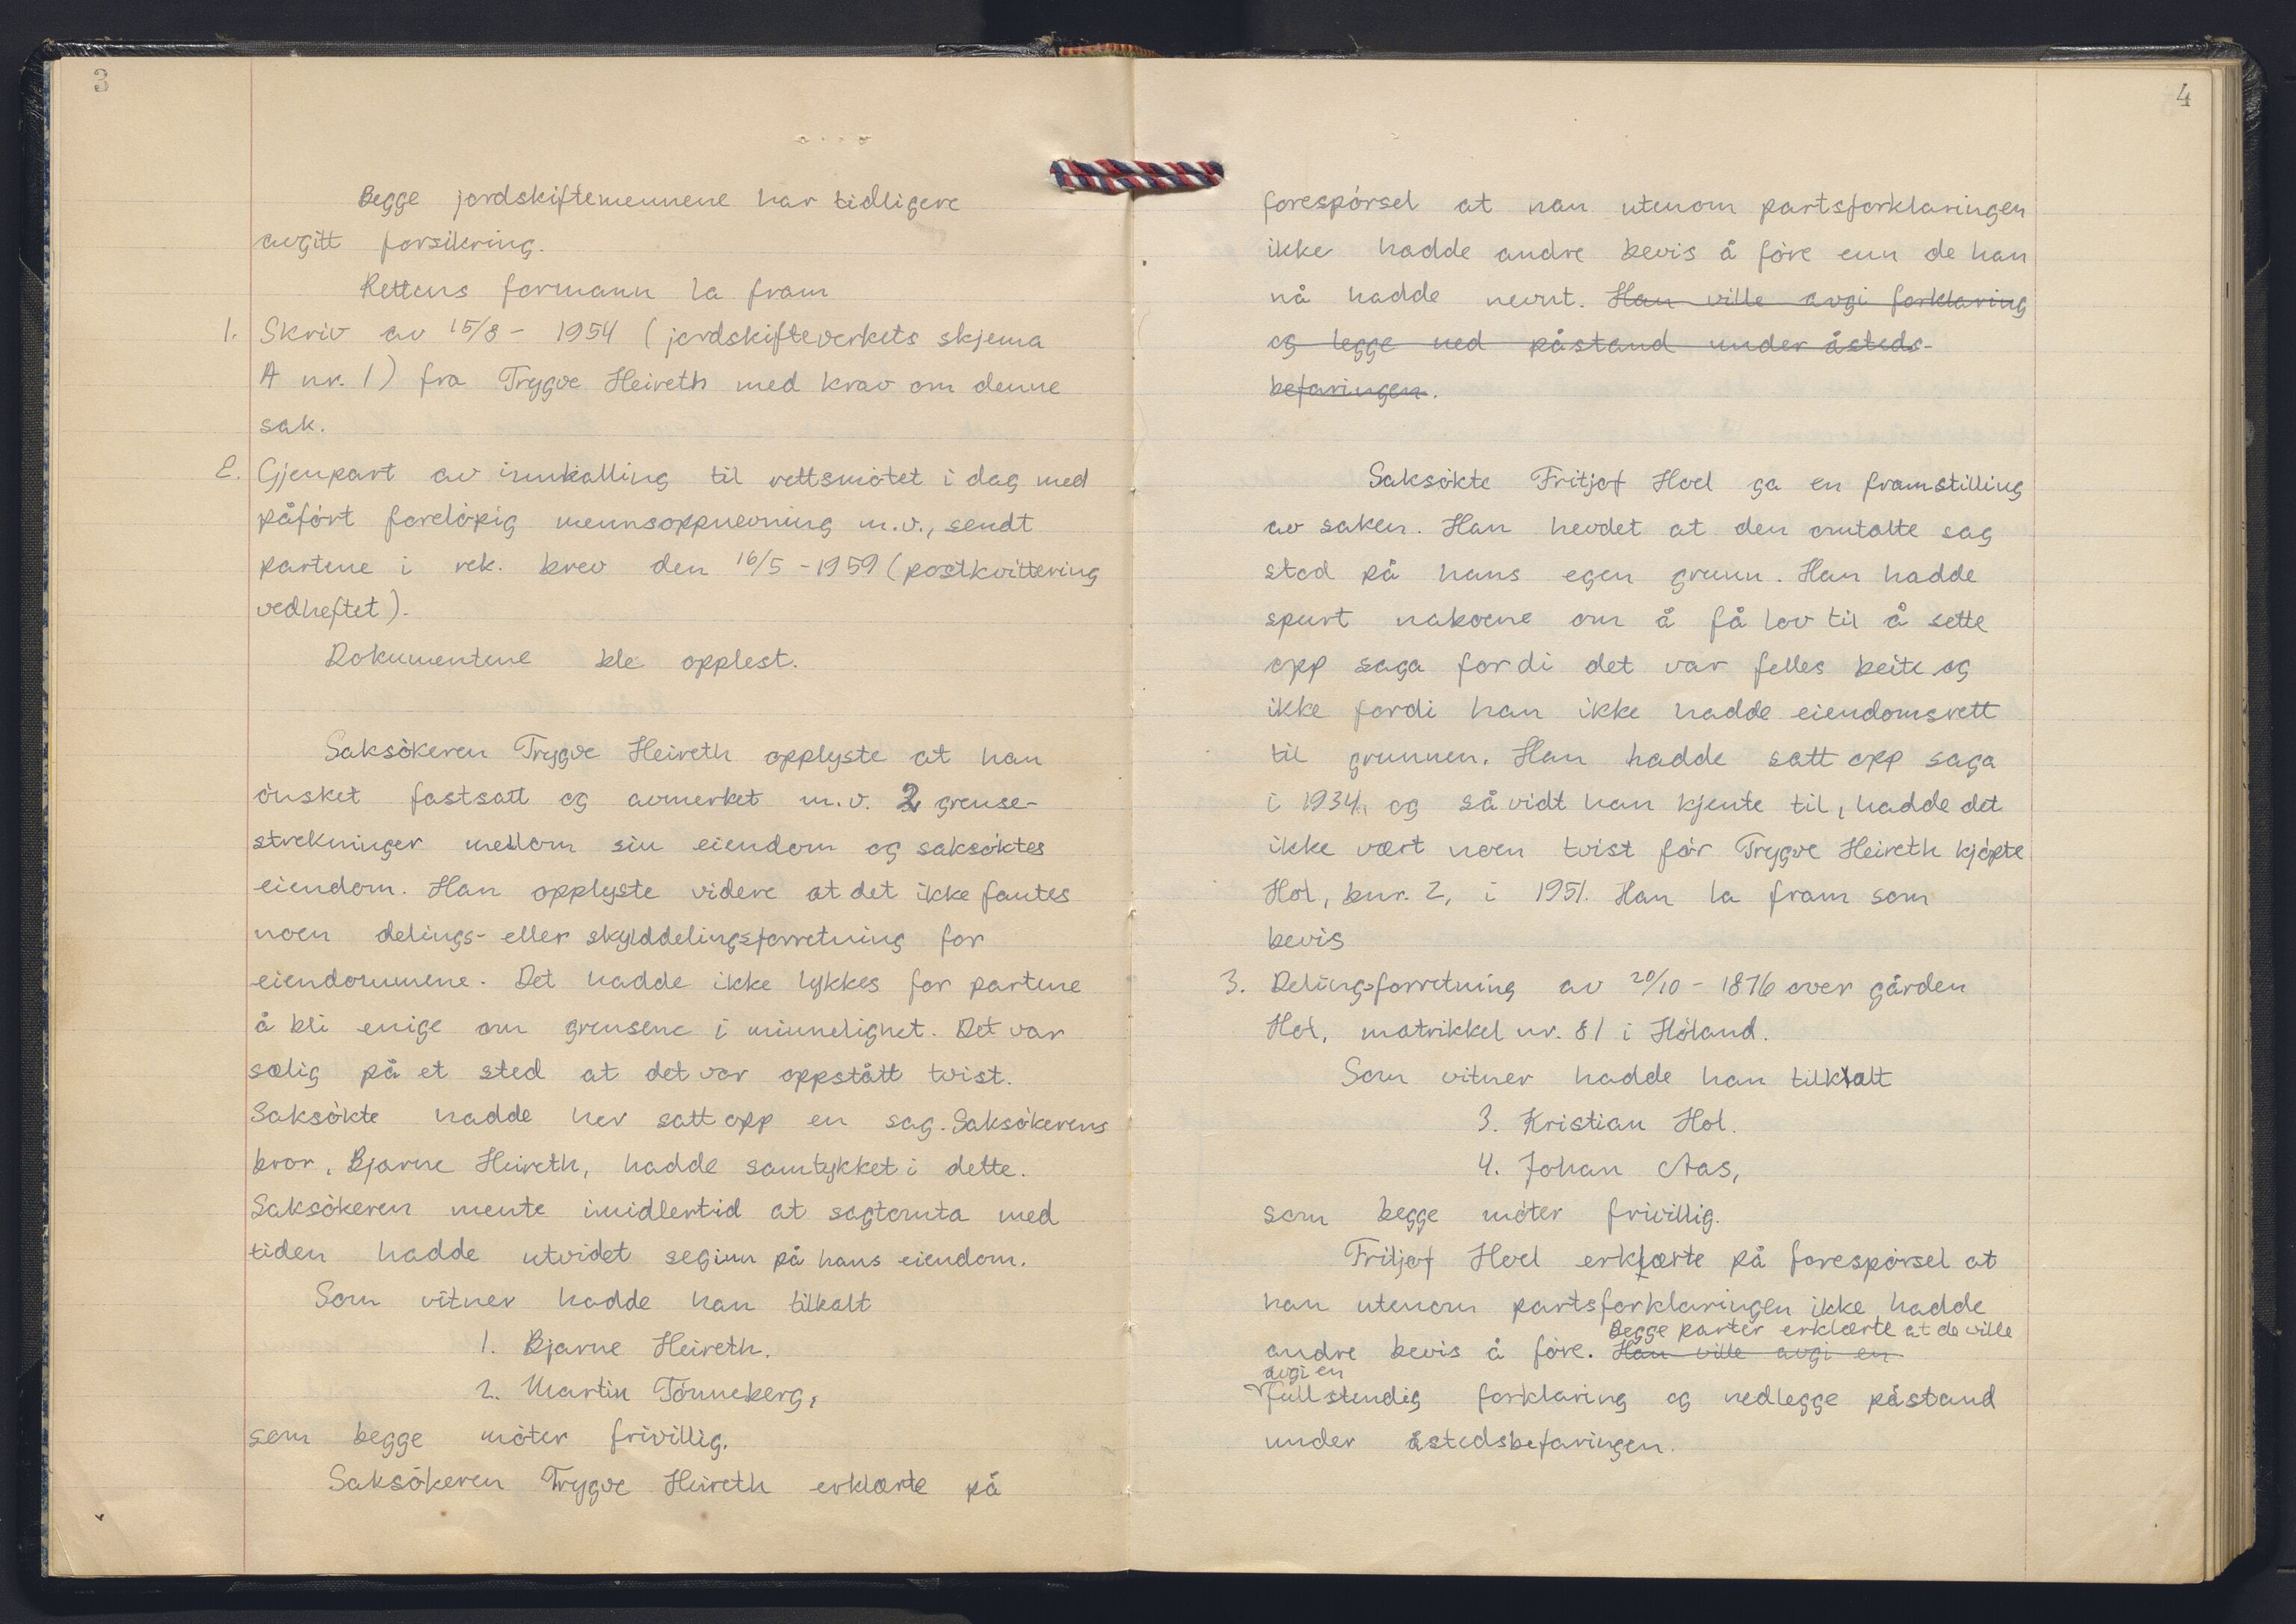 3
Begge jordskiftemennene har tidligere
avgitt forsikring.
Rettens formann la fram
1. Skriv av 15/8 - 1954 (jordskifteverkets skjema
A nr. 1) fra Trygve Heireth med krav om denne
sak.
2. Gjenpart av innkalling til rettsmötet i dag med
påfört forelöpig mennsoppnevning m.v., sendt
partene i rek. brev den 16/5 - 1959 (postkvittering
vedheftet).
Dokumentene ble opplest.
Saksökeren Trygve Heireth opplyste at han
önsket fastsatt og avmerket m.v. 2 grense-
strekninger mellom sin eiendom og saksöktes
eiendom. Han opplyste videre at det ikke fantes
noen delings- eller skylddelingsforretning for
eiendommene. Det hadde ikke lykkes for partene
å bli enige om grensene i minnelighet. Det var
sælig på et sted at det var oppstått tvist.
Saksökte hadde her satt opp en sag. Saksökerens
bror, Bjarne Heireth, hadde samtykket i dette.
Saksökeren mente imidlertid at sagtomta med
tiden hadde utvidet seg inn på hans eiendom.
Som vitner hadde han tilkalt
1. Bjarne Heireth.
2. Martin Tönneberg,
som begge möter frivillig.
Saksökeren Trygve Heireth erklærte på
4
forespörsel at han utenom partsforklaringen
ikke hadde andre bevis å före enn de han
nå hadde nevnt. Han ville avgi forklaring
og legge ned påstand under åsteds-
befaringen.
Saksökte Fritjof Hoel ga en framstilling
av saken. Han hevdet at den omtalte sag
stod på hans egen grunn. Han hadde
spurt naboene om å få lov til å sette
opp saga fordi det var felles beite og
ikke fordi han ikke hadde eiendomsrett
til grunnen. Han hadde satt opp saga
i 1934, og så vidt han kjente til, hadde det
ikke vært noen tvist för Trygve Heireth kjöpte
Hol, bnr. 2, i 1951. Han la fram som
bevis
3. Delingsforretning av 20/10 - 1876 over gården
Hol, matrikkel nr. 81 i Höland.
Som vitner hadde han tilkalt
3. Kristian Hol.
4. Johan Aas,
som begge möter frivillig.
Fritjof Hoel erklærte på forespörsel at
han utenom partsforklaringen ikke hadde
Begge parter erklærte at de ville
andre bevis å före. Han ville avgi en
avgi en
fullstendig forklaring og nedlegge påstand
under åstedsbefaringen.